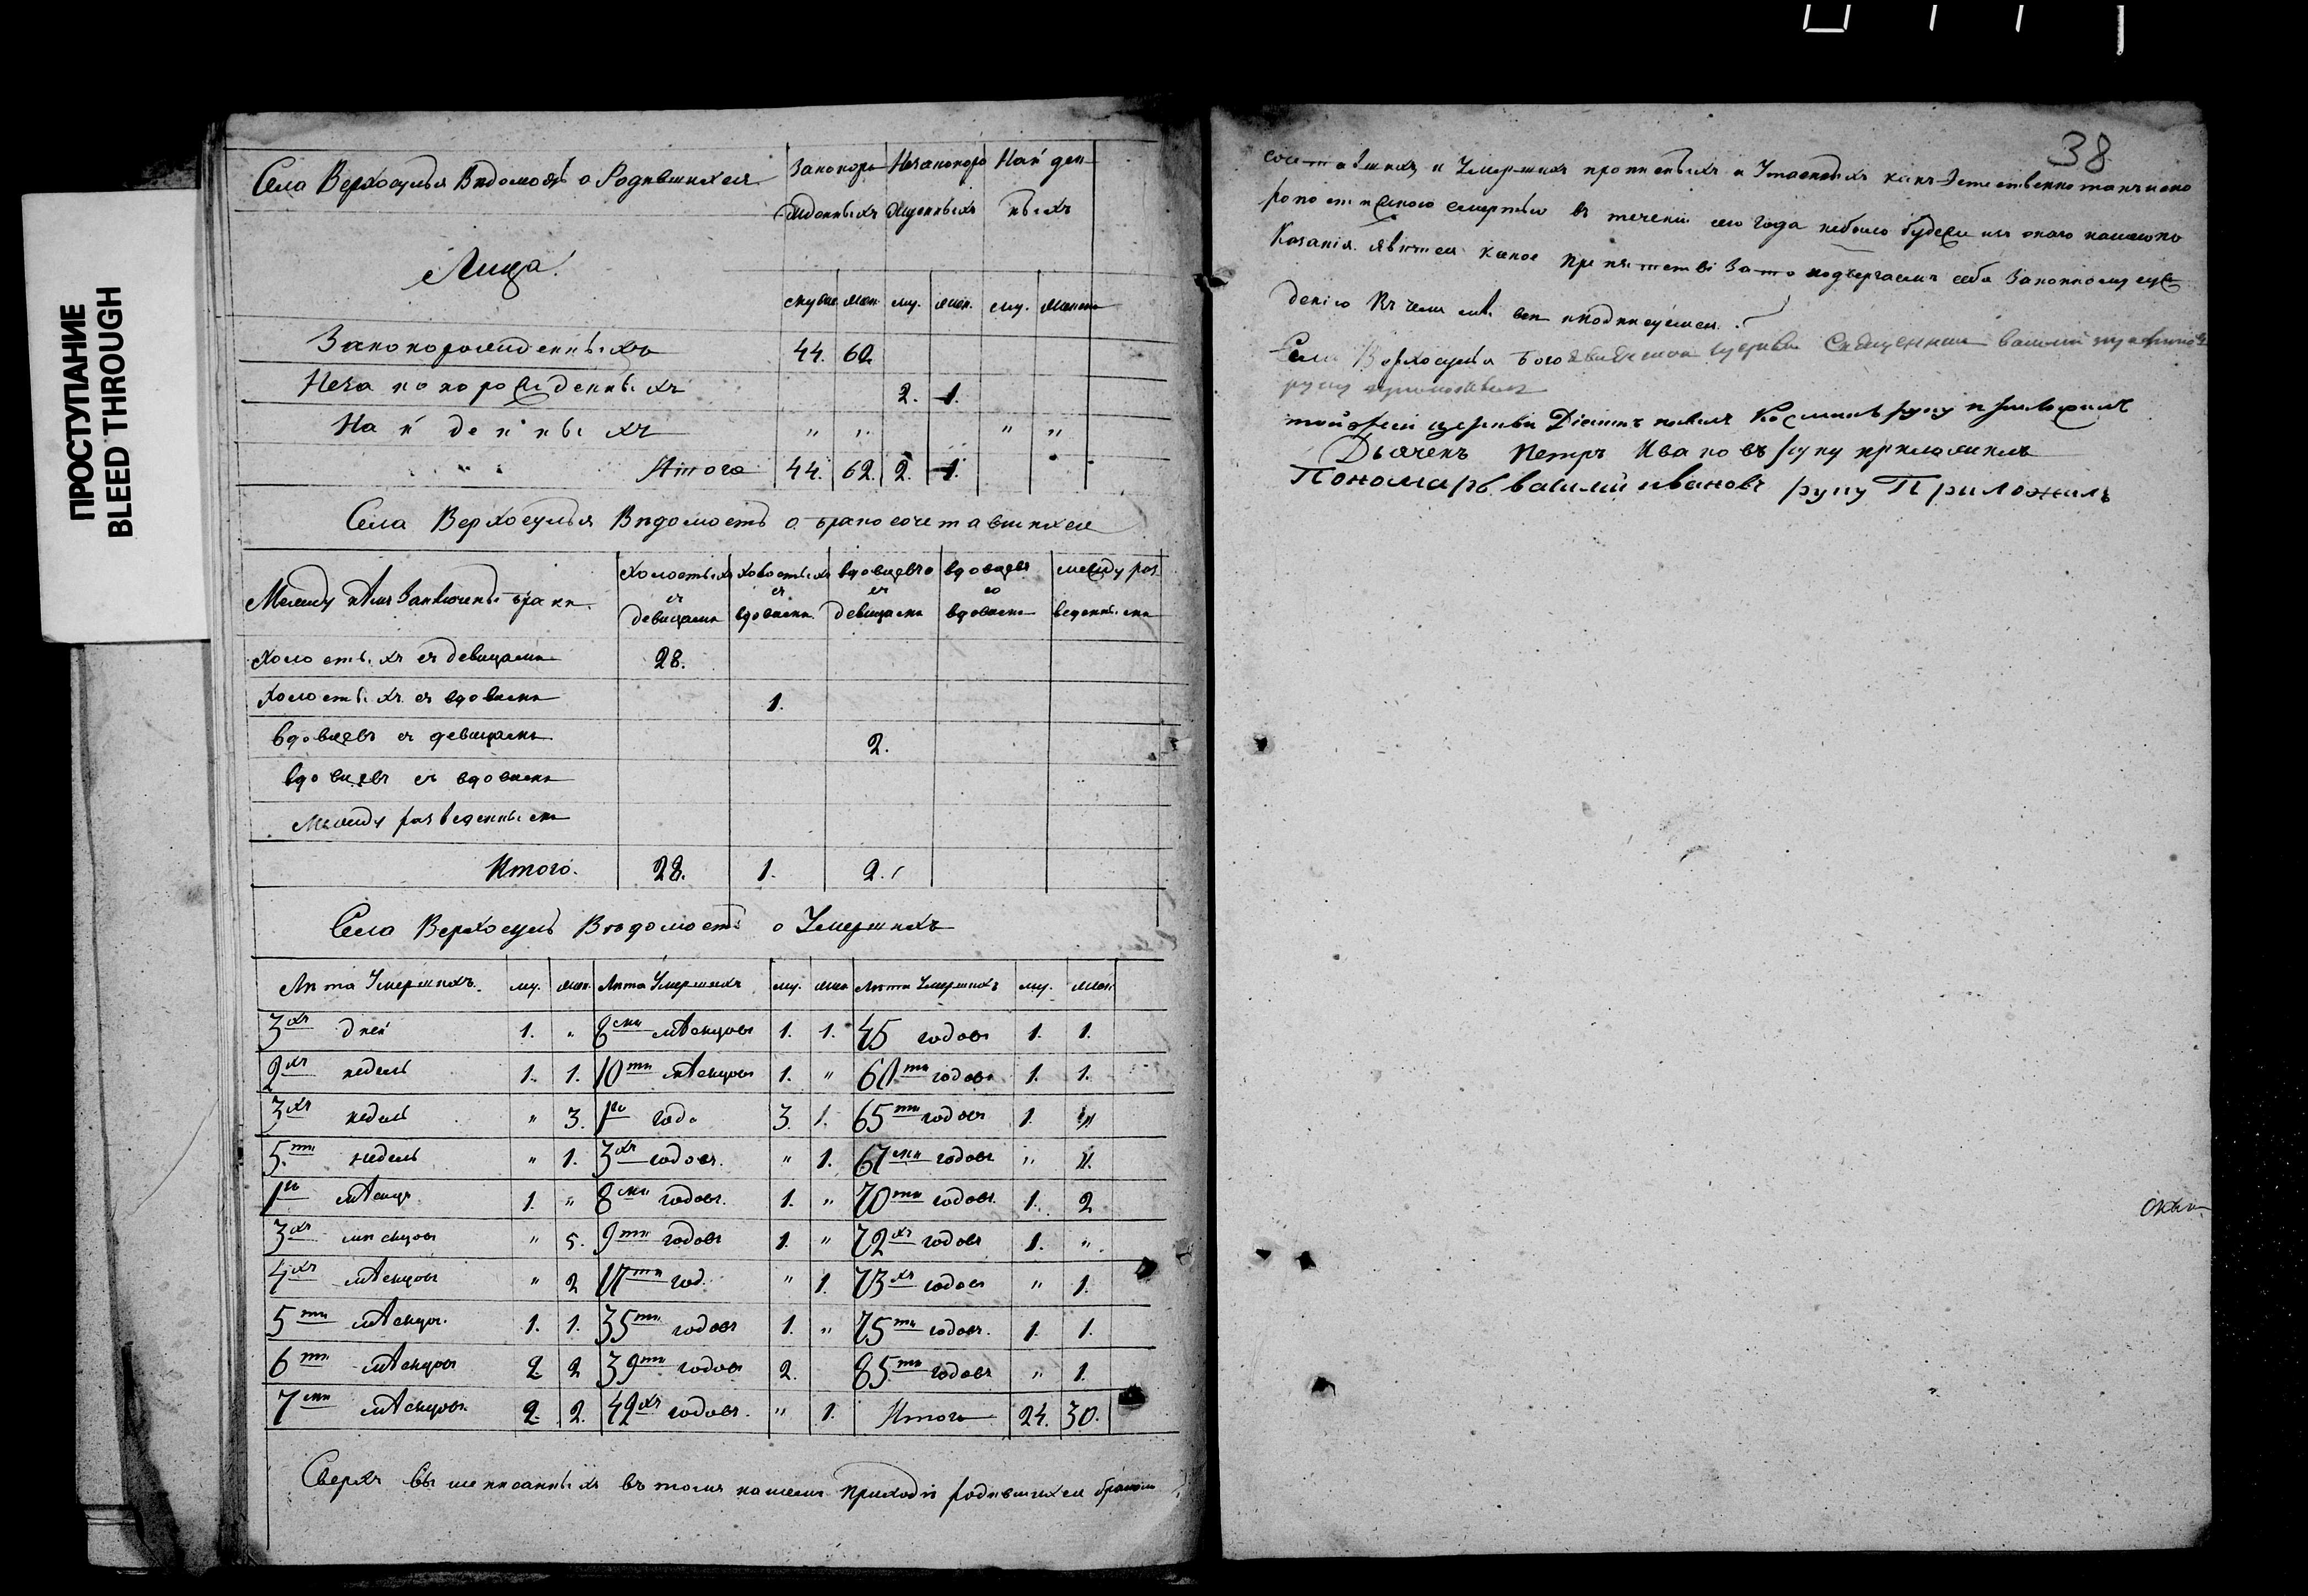 ПРОСТУПАНИЕ
BLEED THROUGH
Села Верхосулья Вѣдомость о Родившихся
Законоро Незаконоро Най ден
жденныхъ жденныхъ ныхъ
Лица
мужск жен му. жен. му. женск
Законорожденныхъ 44. 62
Незаконорожденныхъ 2. 1.
Най ден ныхъ " " " "
Итого 44. 62. 2. 1.
Села Верхосулья Вѣдомость о бракосочетавшихся
Между кѣмъ Заключены браки
холостыхъ съ девицами
холостыхъ съ вдовами
вдовцевъ съ девицами
вдовцевъ со вдовами
между разведенными
холостыхъ съ девицами 28.
холостыхъ съ вдовами 1.
вдовцевъ съ девицами 2.
вдовцевъ съ вдовами
Между разведенными
Итого. 28. 1. 2.
Села Верхосуль Вѣдомость о Умершихъ
Лѣта Умершихъ. му. жен. Лѣта Умершихъ му. жен Лѣта Умершихъ му. жен
3хъ дней 1. " 8ми мѣсяцовъ 1. 1. 45 годовъ 1. 1.
2хъ недель 1. 1. 10ти мѣсяцовъ 1. " 60ти годовъ 1. 1.
3хъ недель " 3. 1го года 3. 1. 65ти годовъ 1. "
5ти недель " 1. 3хъ годовъ. " 1. 67ми годовъ "
1го мѣсяца 1. " 8ми годовъ. 1. " 70ти годовъ. 1. 2
3хъ мѣсяцовъ " 5. 9ти годовъ 1. " 72хъ годовъ 1. "
4хъ мѣсяцовъ " 2 17ти год. " 1. 73хъ годовъ " 1.
5ти мѣсяцов. 1. 1. 35ти годовъ 1. " 75ти годовъ. 1. 1.
6ти мѣсяцовъ 2 2 39ти годовъ 2. 85ти годовъ " 1.
7ми мѣсяцовъ 2. 2. 42хъ годовъ. " 1. Итого 24. 30.
Сверхъ выше писанныхъ въ томъ нашемъ приходѣ родившихся бракосо
38
четавшихся и Умершихъ пропискныхъ и Утаенныхъ какъ Естественно такъ и ско
ропостижною смертью въ теченіи сего года небыло будели изъ онаго нашего по
Казанія явится какое препятстві За то подвергаемъ себя Законному суж
денію Въ чемъ мы вси и подписуемся.
Села Верхосулья Богоявленской церкви Священникъ василий
руку приложилъ
тойжъ церкви Діаконъ Косминъ руку приложилъ
Дьячекъ Петръ Ивановъ руку приложилъ
Пономарь василий ивановъ руку Приложилъ